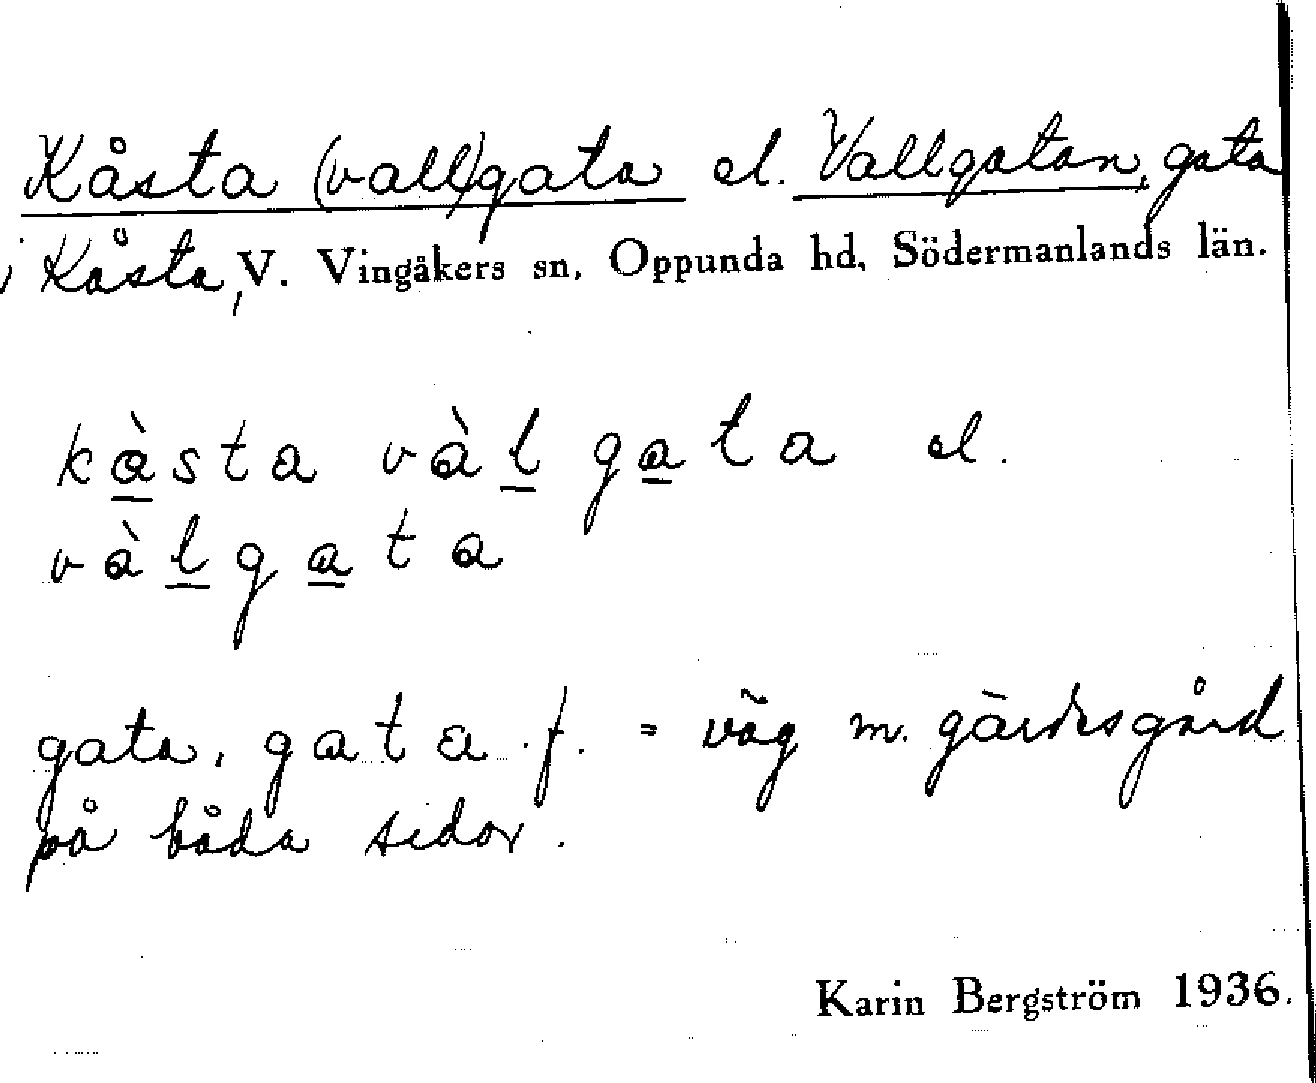 Kåsta (vall)gata el. Vallgatan, gata
i Kåsta, V. Vingåkers sn, Oppunda hd, Södermanlands län.
kàsta vàl gata el.
vàlgata
gata, gata f. = väg m. gärdsgård
på båda sidor.
Karin Bergström 1936.